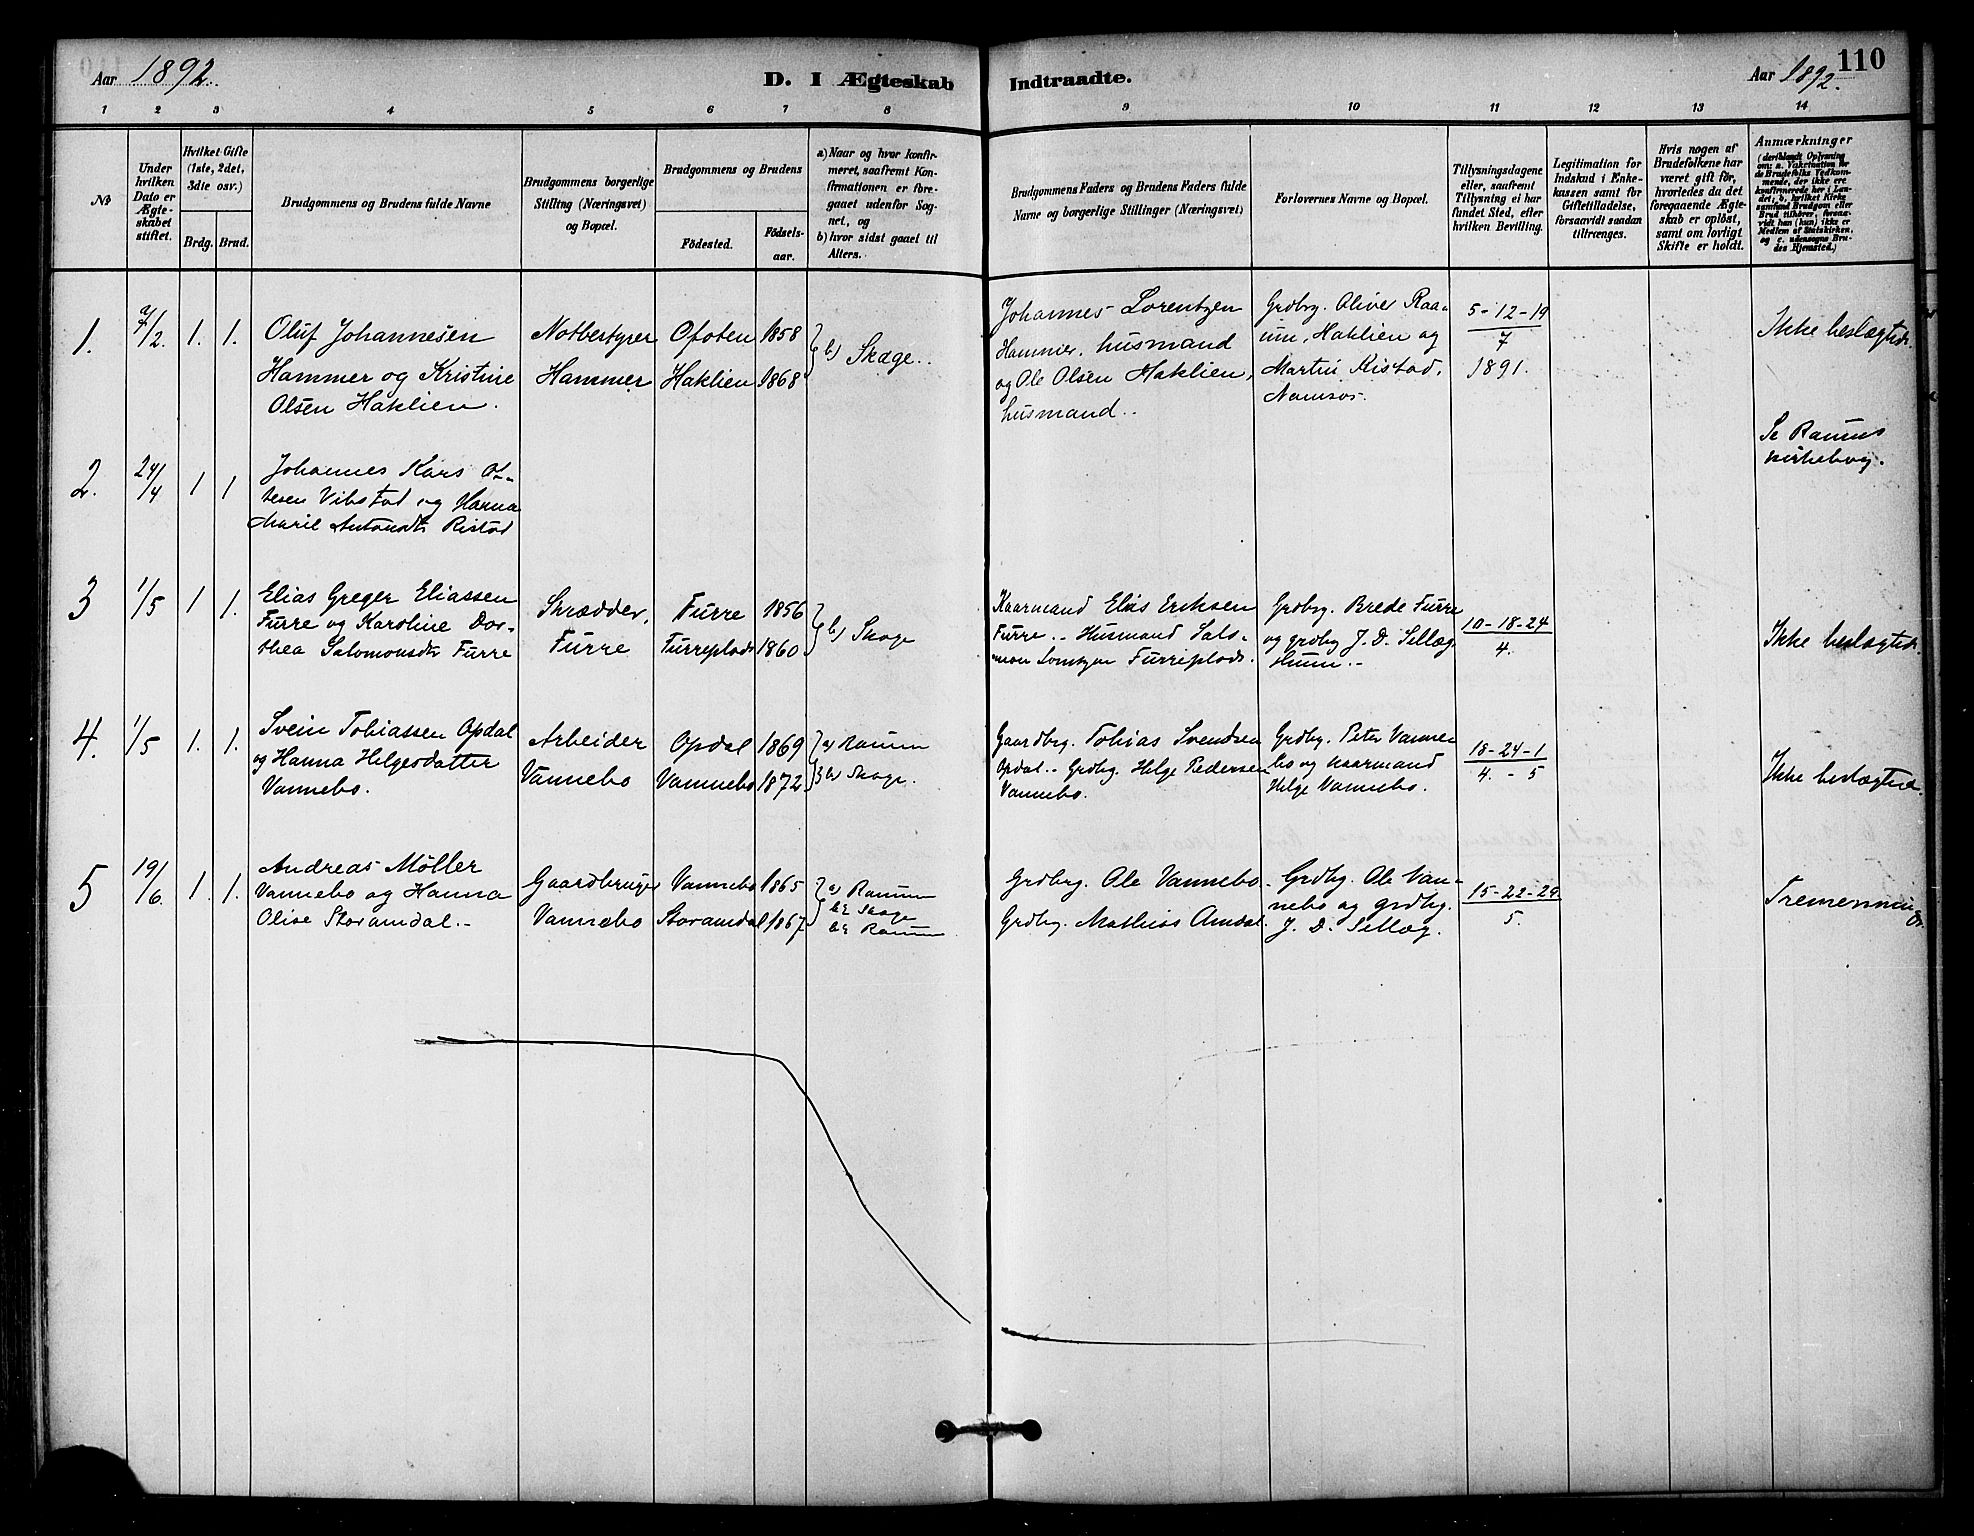 Aar 1892.
D. I Ægteskab Indtraadte.
Aar 1892.
110
1 2 3 4 5 6 7 8 9 10 11 12 13 14
№
Under
hvilken
Dato er
Ægte-
skabet
stiftet.
Hvilket Gifte
(1ste, 2det,
3die osv.)
Brdg. Brud.
Brudgommens og Brudens fulde Navne
Brudgommens borgerlige
Stilling (Næringsvei)
og Bopæl.
Brudgommens og Brudens
Födested.
Födsels-
aar.
a) Naar og hvor konfir-
meret, saafremt Kon-
firmationen er fore-
gaaet udenfor Sog-
net, og
b) hvor sidst gaaet til
Alters.
Brudgommens Faders og Brudens Faders fulde
Navne og borgerlige Stillinger (Næringsvei)
Forlovernes Navne og Bopæl.
Tillysningsdagene
eller, saafremt
Tillysning ei har
fundet Sted, efter
hvilken Bevilling.
Legitimation for
Indskud i Enke-
kassen samt for
Giftetilladelse,
forsaavidt saadan
tiltrænges.
Hvis nogen af
Brudefolkene har
været gift för,
hvorledes da det
foregaaende Ægte-
skab er oplöst,
samt om lovligt
Skifte er holdt.
Anmærkninger
(deriblandt Oplysning
om: a. Vakcination for
de Brudefolks Vedkom-
mende, der ikke ere
konfirmerede her i Lan-
det; b. hvilket Kirke
samfund Brudgom eller
Brud tilhörer, forsaa-
vidt han (hun) ikke er
Medlem af Statskirken,
og c. udensogns Bru-
des Hjemsted.)
1. 7/2. 1. 1.
Oluf Johannesen
Hammer og Kristine
Olsen Haklien.
Notbestyrer
Hammer
Ofoten 1858
Haklien 1868
b) Skage.
Johannes Lorentzen
Hammer, husmand
og Ole Olsen Haklien,
husmand.
Grdbrg. Oliver Raa-
um, Haklien og
Martin Ristad,
Namsos.
5-12-19
7
1891.
Ikke beslægtede.
2. 24/4 1 1
Johannes Kars Ot-
tesen Vibstad og Hanna
Marie Antonsdtr Ristad
Se Ranems
kirkebog.
3 1/5 1 1.
Elias Greger Eliassen
Furre og Karoline Dor-
thea Salomonsdtr Furre
Skrædder,
Furre
Furre 1856
Furreplads 1860
b) Skage
Kaarmand Elias Eriksen
Furre. - Husmand Salo-
mon Lorntzen Furreplads.
Grdbrg. Brede Furre
og grdbg J. D. Sellæg
Hunn.
10-18-24
4.
Ikke beslægtede.
4. 1/5 1. 1.
Svein Tobiassen Opdal
og Hanna Helgesdatter
Vannebo.
Arbeider
Vannebo
Opdal 1869
Vannebo 1872
a) Ranem
b) Skage.
Gaardbrg. Tobias Svendsen
Opdal. - Grdbg. Helge Pedersen
Vannebo.
Grdbg. Peter Vanne-
bo og kaarmand
Helge Vannebo.
18-24-1
4. - 5
Ikke beslægtede.
5 19/6. 1. 1.
Andreas Møller
Vannebo og Hanna
Olise Storamdal.
Gaardbruger
Vannebo
Vannebo 1865
Storamdal 1867
a) Ranem
b) Skage
b) Ranem
Grdbrg. Ole Vannebo
Grdbg. Mathias Amdal.
Grdbg. Ole Van-
nebo og grdbg.
J. D. Sellæg.
15-22-29
5.
Tremenninger.